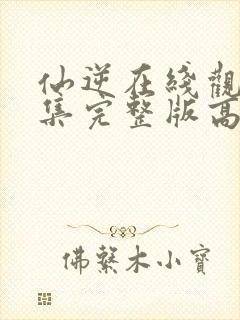 仙逆在綫觀
集完整版高
佛繫木小寶